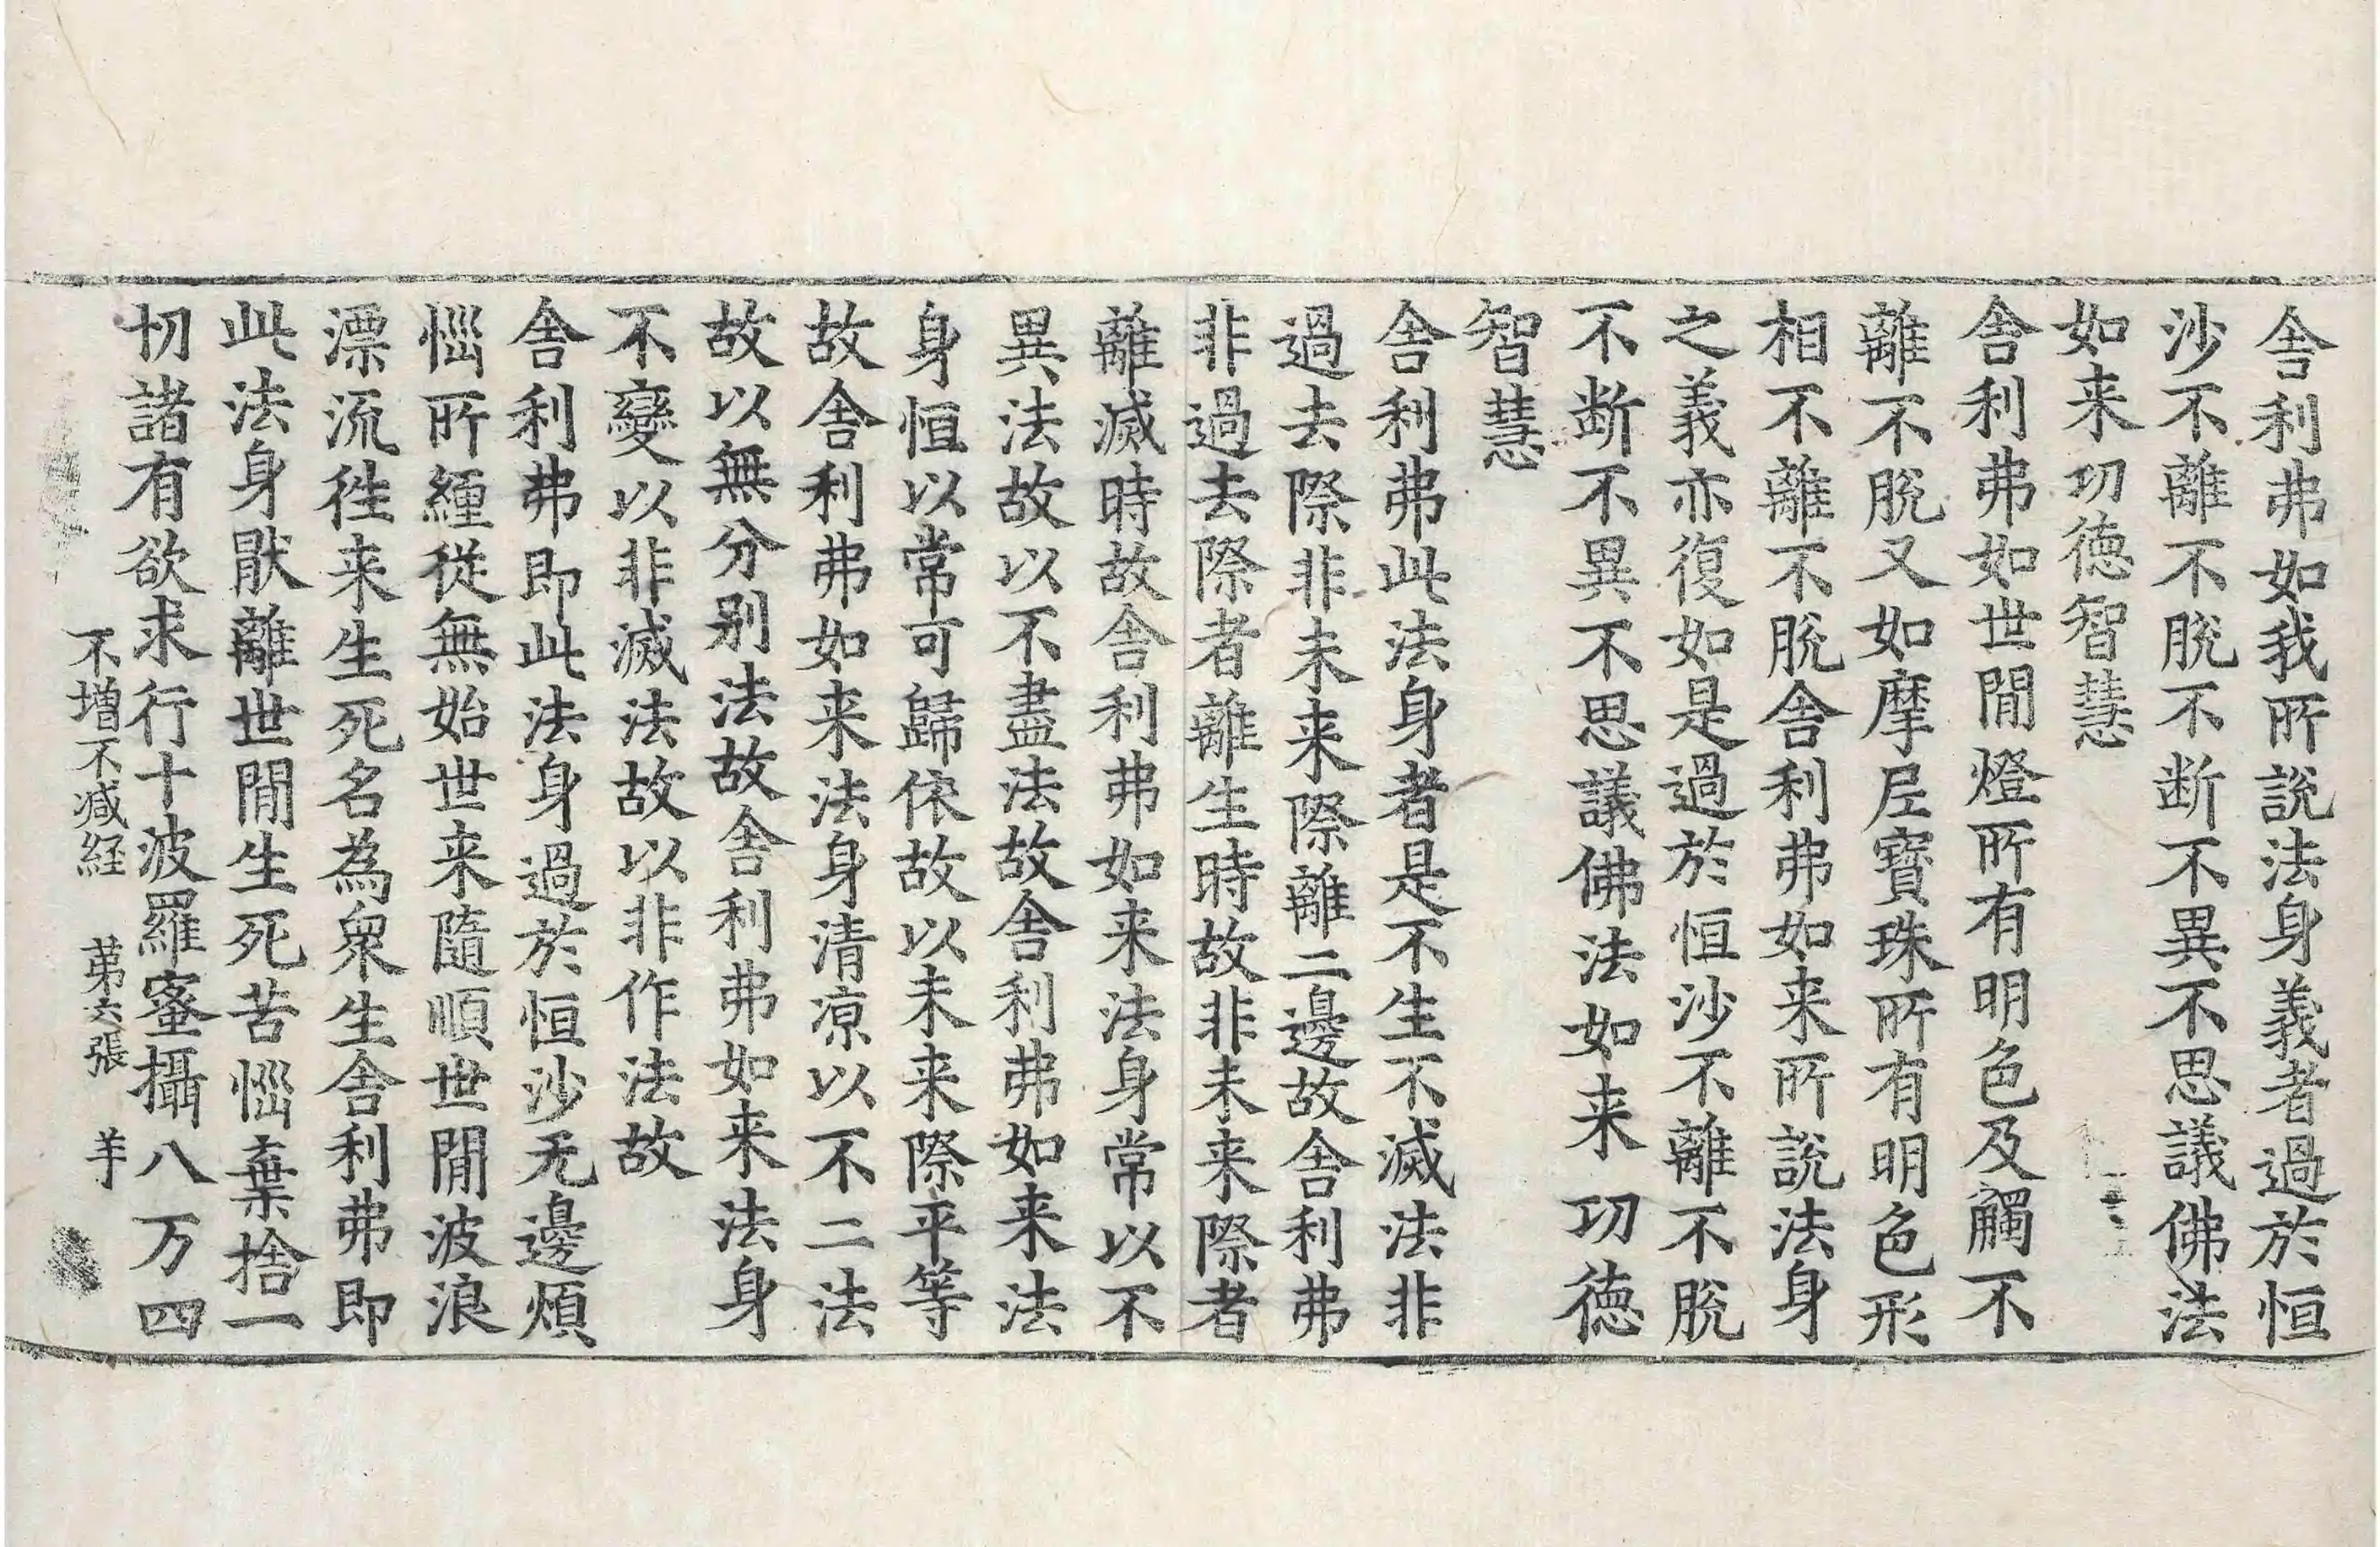 舎利弗如我所說法身義者過於恒
沙不離不脫不断不異不思議佛法
如来功徳智慧
舎利弗如世閒燈所有明色及觸不
離不脫又如摩尼寶珠所有明色形
相不離不脫舎利弗如来所說法身
之義亦復如是過於恒沙不離不脫
不断不異不思議佛法如来功徳
智慧
舎利弗此法身者是不生不滅法非
過去際非未来際離二邊故舎利弗
非過去際者離生時故非未来際者
離滅時故舎利弗如来法身常以不
異法故以不盡法故舎利弗如来法
身恒以常可歸依故以未来際平等
故舎利弗如来法身清凉以不二法
故以無分别法故舎利弗如来法身
不變以非滅法故以非作法故
舎利弗即此法身過於恒沙无邊煩
惱所纏從無始世来隨順世閒波浪
漂流徃来生死名為衆生舎利弗即
此法身猒離世閒生死苦惱棄捨一
切諸有欲求行十波羅蜜攝八万四
不増不减経 苐六張 羊